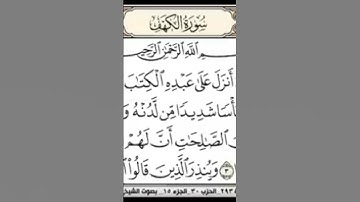 سُورَةُ الكَهْفِ
ـمِ ٱللَّهِ ٱلرَّحْمَٰنِ ٱلرَّحِيـ
أَنزَلَ عَلَىٰ عَبْدِهِ ٱلْكِتَٰبَ
أْسًا شَدِيدًا مِّن لَّدُنْهُ وَ
ٱلصَّٰلِحَٰتِ أَنَّ لَهُمْ
٣ وَيُنذِرَ ٱلَّذِينَ قَالُوا۟
٢٩٣ الحزب ٣٠ الجزء ١٥ بصوت الشيخ